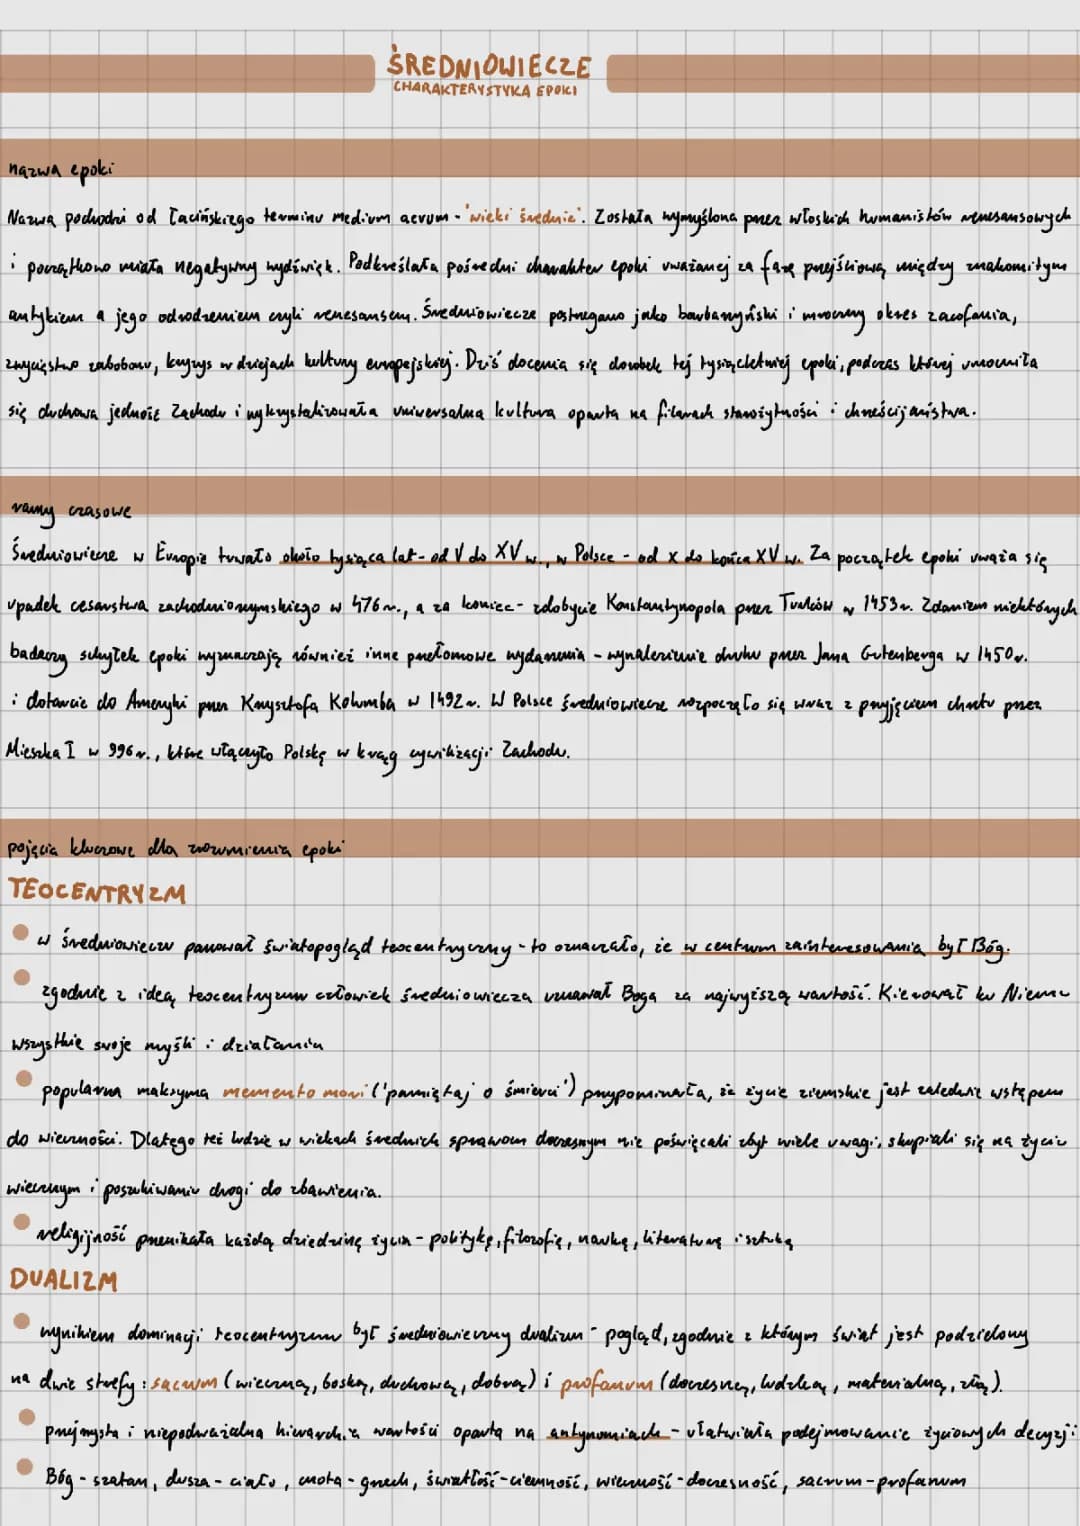 ŚREDNIOWIECZE
CHARAKTERYSTYKA EPOKI
nazwa epoki
Nazwa pochodzi od łacińskiego terminu medium aevum - 'wieki średnie'. Została wymyślona przez włoskich humanistów renesansowych
i początkowo miała negatywny wydźwięk. Podkreślała pośredni charakter epoki uważanej za fazę przejściową między znakomitym
antykiem a jego odrodzeniem czyli renesansem. Średniowiecze postrzegano jako barbarzyński i mroczny okres zacofania,
zwycięstwo zabobonu, kryzys w dziejach kultury europejskiej. Dziś docenia się dorobek tej tysiącletniej epoki, podczas której umocniła
się duchowa jedność Zachodu i wykrystalizowała uniwersalna kultura oparta na filarach starożytności i chrześcijaństwa.
ramy czasowe
Średniowiecze w Europie trwało około tysiąca lat - od V do XV w., w Polsce - od X do końca XV w. Za początek epoki uważa się
upadek cesarstwa zachodniorzymskiego w 476 r., a za koniec - zdobycie Konstantynopola przez Turków w 1453 r. Zdaniem niektórych
badaczy schyłek epoki wyznaczają również inne przełomowe wydarzenia - wynalezienie druku przez Jana Gutenberga w 1450 r.
i dotarcie do Ameryki przez Krzysztofa Kolumba w 1492 r. W Polsce średniowiecze rozpoczęło się wraz z przyjęciem chrztu przez
Mieszka I w 996 r., które włączyło Polskę w krąg cywilizacji Zachodu.
pojęcia kluczowe dla zrozumienia epoki
TEOCENTRYZM
w średniowieczu panował światopogląd teocentryczny - to oznaczało, że w centrum zainteresowania był Bóg.
zgodnie z ideą teocentryzmu człowiek średniowiecza uznawał Boga za najwyższą wartość. Kierował ku Niemu
wszystkie swoje myśli i działania
popularna maksyma memento mori ('pamiętaj o śmierci') przypominała, że życie ziemskie jest zaledwie wstępem
do wieczności. Dlatego też ludzie w wiekach średnich sprawom doczesnym nie poświęcali zbyt wiele uwagi, skupiali się na życiu
wiecznym i poszukiwaniu drogi do zbawienia.
religijność przenikała każdą dziedzinę życia - politykę, filozofię, naukę, literaturę i sztukę
DUALIZM
wynikiem dominacji teocentryzmu był średniowieczny dualizm - pogląd, zgodnie z którym świat jest podzielony
na dwie strefy: sacrum (wieczną, boską, duchową, dobrą) i profanum (doczesną, ludzką, materialną, złą).
przejrzysta i niepodważalna hierarchia wartości oparta na antynomiach - ułatwiała podejmowanie życiowych decyzji
Bóg - szatan, dusza - ciało, cnota - grzech, światłość - ciemność, wieczność - doczesność, sacrum - profanum